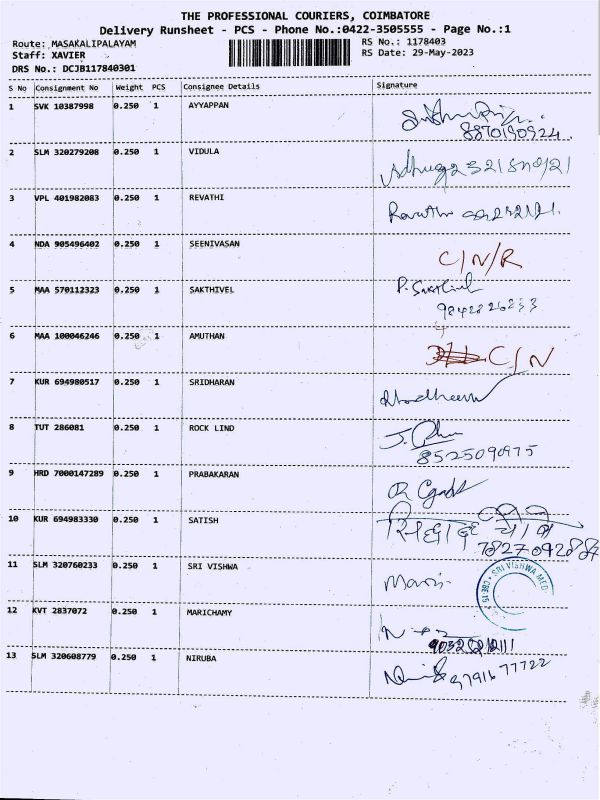 THE PROFESSIONAL COURIERS, COIMBATORE
Delivery Runsheet - PCS - Phone No.:0422-3505555 - Page No.:1
Route: MASAKALIPALAYAM
RS No.: 1178403
Staff: XAVIER
RS Date: 29-May-2023
DRS No.: DCJB117840301
S No Consignment No Weight PCS Consignee Details Signature
1 SVK 10387998 0.250 1 AYYAPPAN
8870190924
2 SLM 320279208 0.250 1 VIDULA
3 VPL 401982083 0.250 1 REVATHI Revathi
4 NDA 905496402 0.250 1 SEENIVASAN C/N/R
5 MAA 570112323 0.250 1 SAKTHIVEL P. Sakthivel
9842826233
6 MAA 100046246 0.250 1 AMUTHAN C/N
7 KUR 694980517 0.250 1 SRIDHARAN
8 TUT 286081 0.250 1 ROCK LIND
8525090975
9 HRD 7000147289 0.250 1 PRABAKARAN
10 KUR 694983330 0.250 1 SATISH
11 SLM 320760233 0.250 1 SRI VISHWA
SRI VISHWA MED
12 KVT 2837072 0.250 1 MARICHAMY
13 SLM 320608779 0.250 1 NIRUBA 9791677722